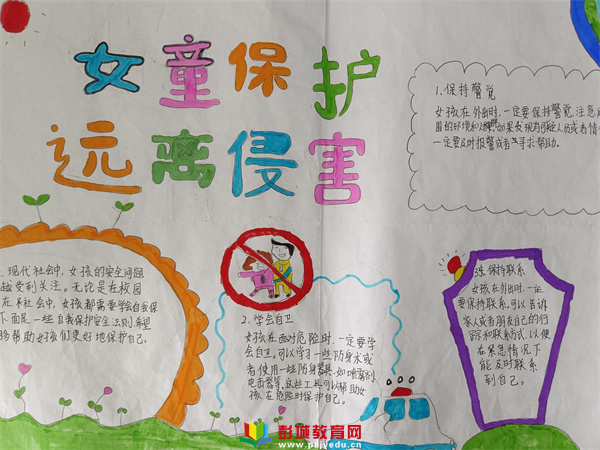 女童保护
远离侵害
1.保持警觉
女孩在外出时,一定要保持警觉,注意周
围的环境和人群,如果发现有可疑人员或者情
一定要及时报警或者寻求帮助。
现代社会中,女孩的安全问题
越受到关注。无论是在校园
在社会中,女孩都需要学会自我保
下面是一些自我保护安全法则,希望
够帮助女孩们更好地保护自己。
2.学会自卫
女孩在面对危险时,一定要学
会自卫,可以学习一些防身术或
者使用一些防身器具,如喷雾剂,
电击器等,这些工具可以帮助女
孩在危险时保护自己。
3.保持联系
女孩在外出时,一定
要保持联系,可以告诉
家人或者朋友自己的行
踪和联系方式,以便
在紧急情况下
能及时联系
到自己。
彭城教育网
www.pdjyedu.cn